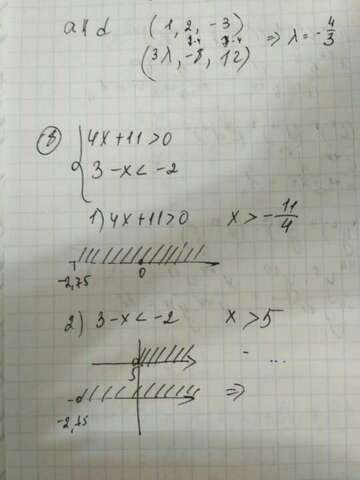 a || d (1, 2, -3) => λ = -4/3
·-4 ·-4
(3λ, -8, 12)
8 { 4x+11>0
3-x<-2
1) 4x+11>0 x > -11/4
-2,75 0
2) 3-x<-2 x>5
5 - ...
-2,75 =>